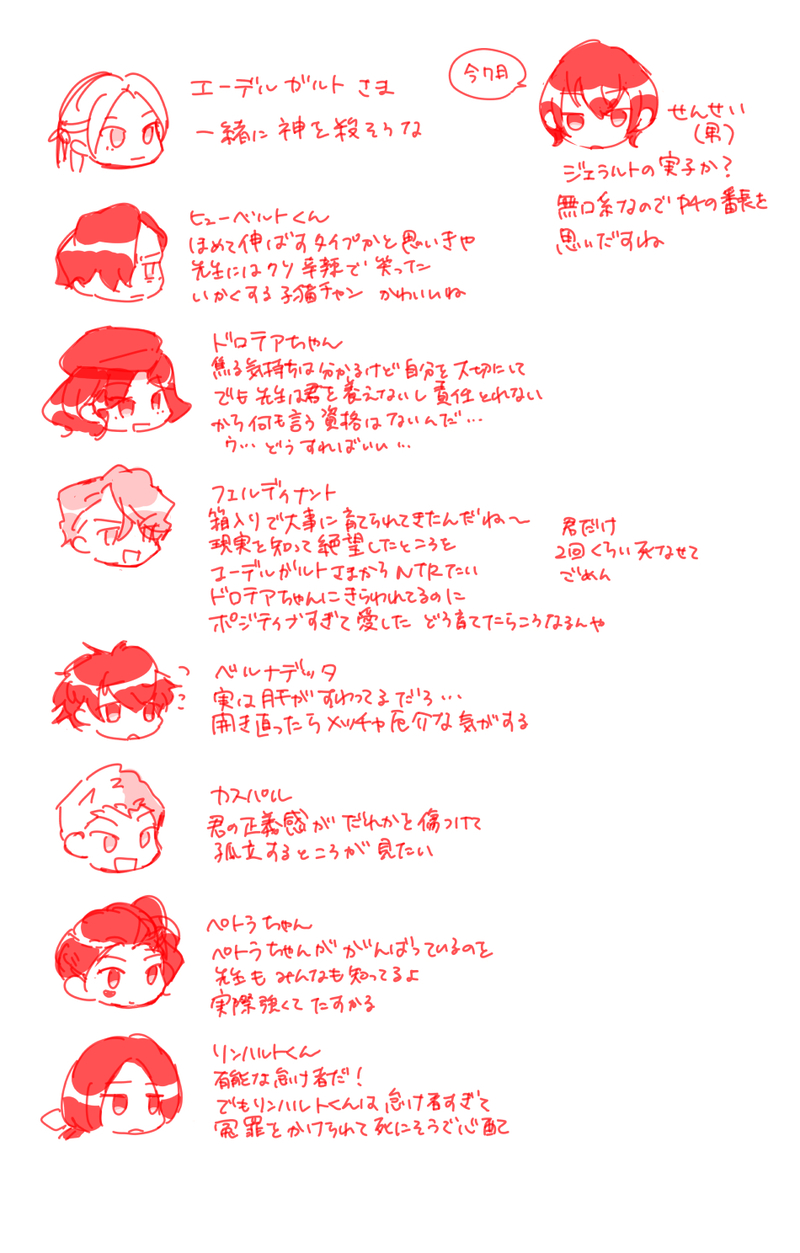 エーデルガルトさま
一緒に神を殺そうな
今7月
せんせい
(男)
ジェラルトの実子か?
無口系なのでP4の番長を
思いだすね
ヒューベルトくん
ほめて伸ばすタイプかと思いきや
先生にはクソ辛辣で笑った
いかくする子猫チャン かわいいね
ドロテアちゃん
焦る気持ちは分かるけど自分を大切にして
でも先生は君を養えないし責任とれない
から何も言う資格はないんだ…
ウ…どうすればいい…
フェルディナント
箱入りで大事に育てられてきたんだね〜
現実を知って絶望したところを
エーデルガルトさまからNTRたい
ドロテアちゃんにきらわれてるのに
ポジティブすぎて愛した どう育てたらこうなるんや
君だけ
2回くらい死なせて
ごめん
ベルナデッタ
実は肝がすわってるだろ…
開き直ったらメッチャ厄介な気がする
カスパル
君の正義感がだれかを傷つけて
孤立するところが見たい
ペトラちゃん
ペトラちゃんががんばっているのを
先生もみんなも知ってるよ
実際強くてたすかる
リンハルトくん
有能な怠け者だ!
でもリンハルトくんは怠け者すぎて
冤罪をかけられて死にそうで心配